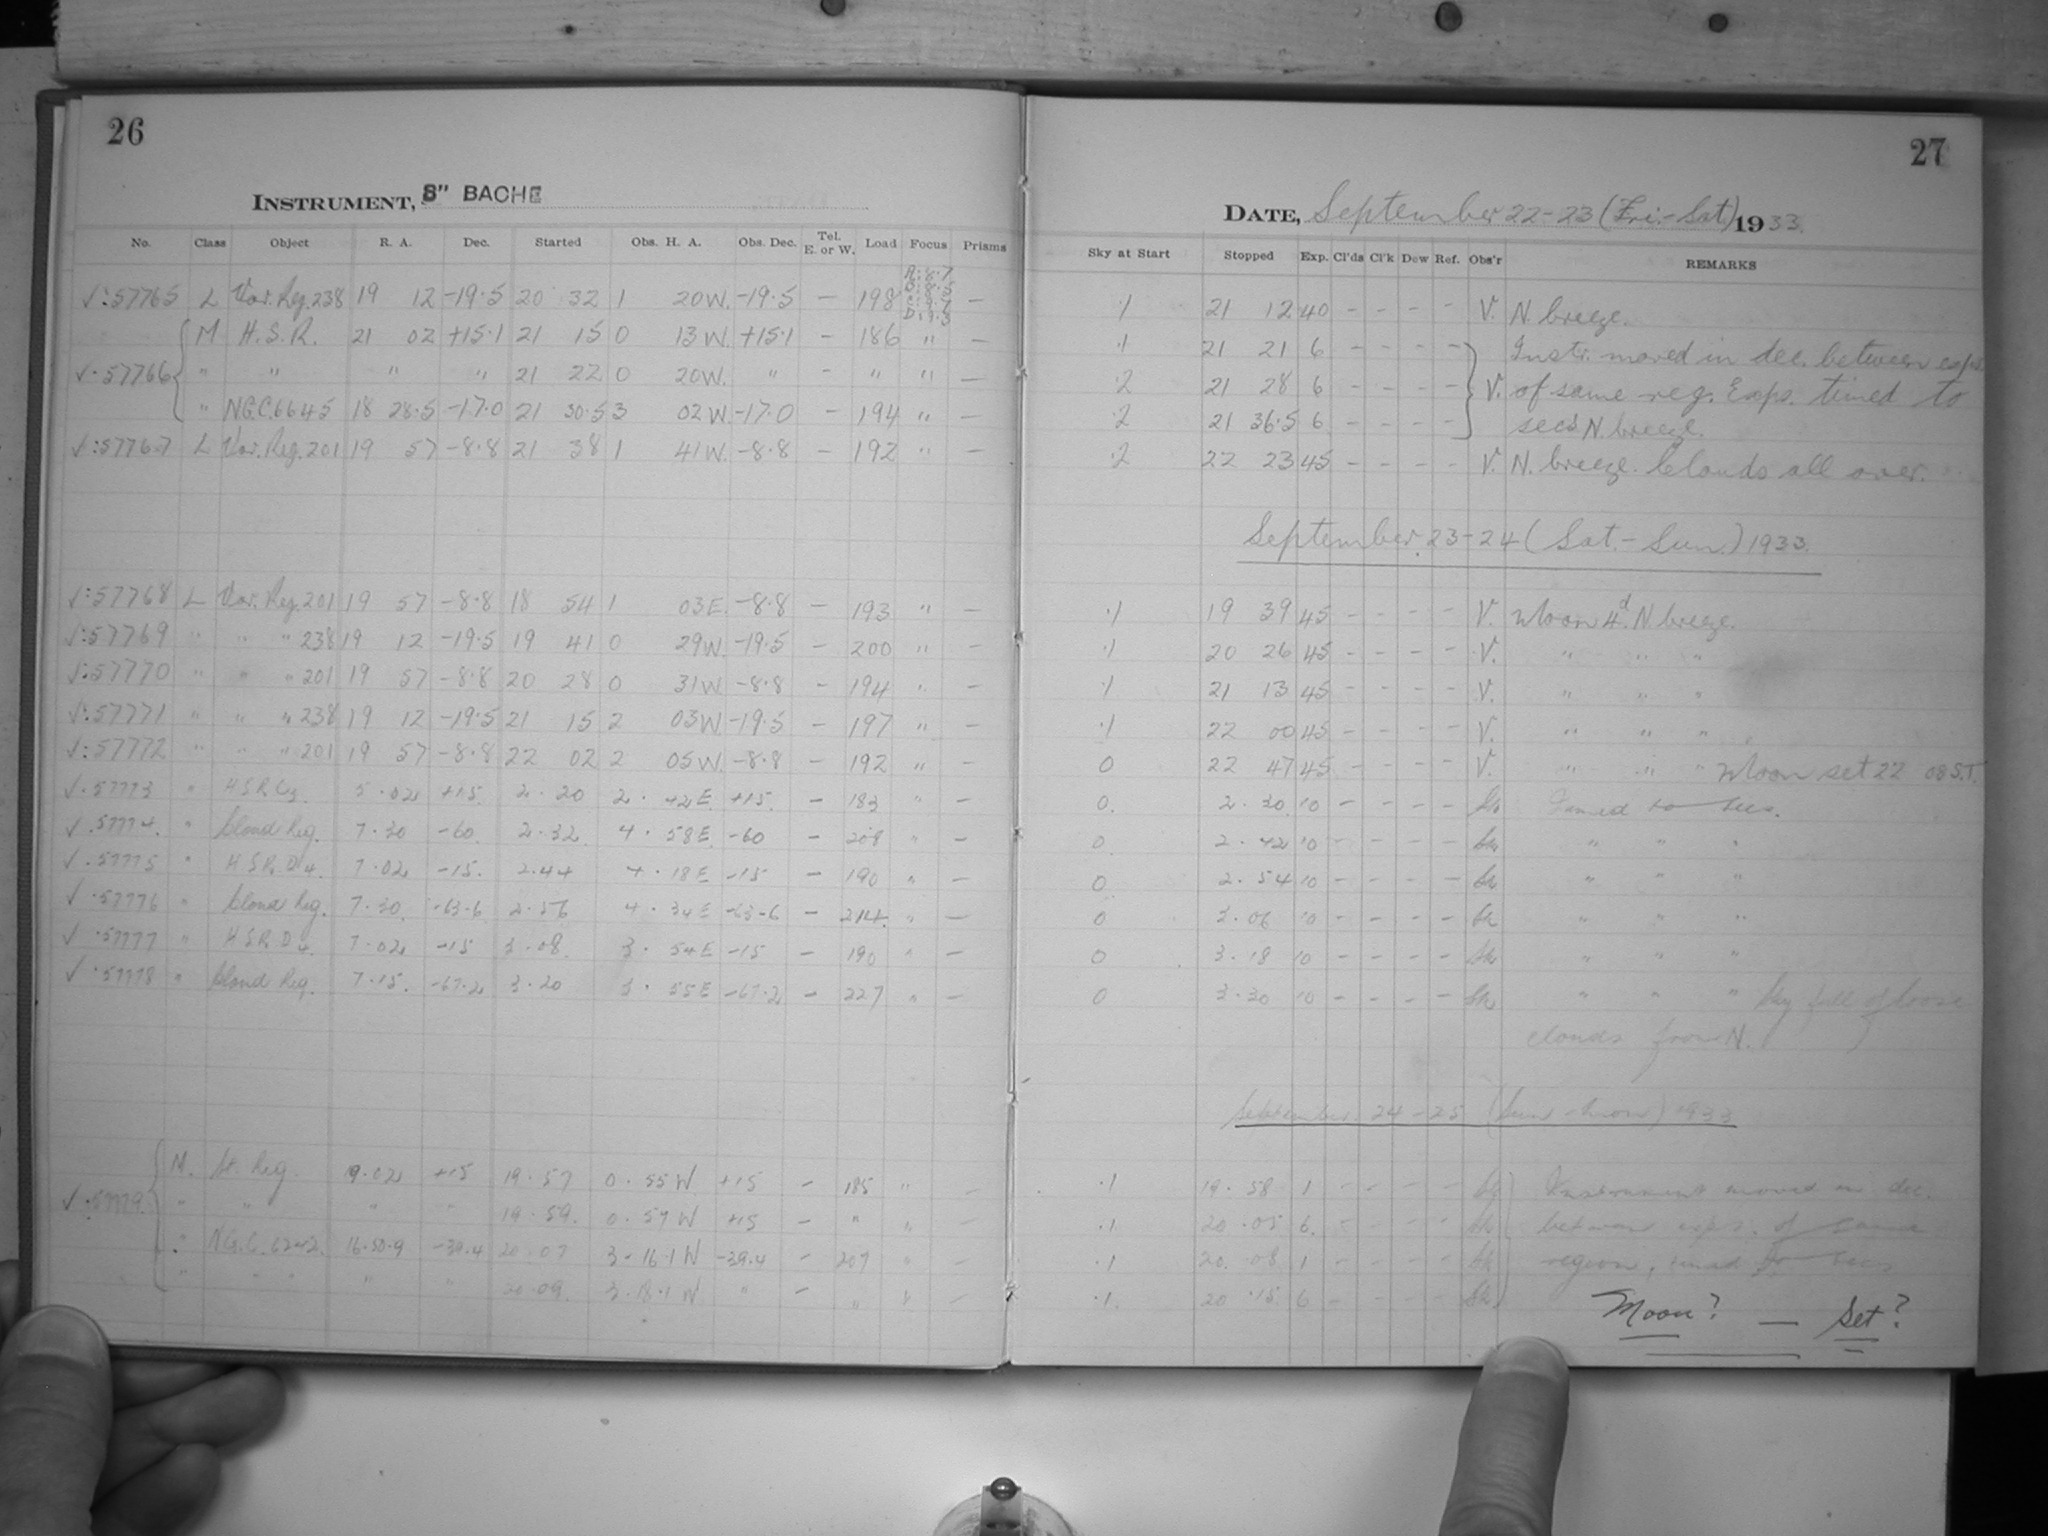 26
INSTRUMENT, 8" BACHE
No. Class Object R. A. Dec. Started Obs. H. A. Obs. Dec. Tel. E. or W. Load Focus Prisms
√:57765 L Var. Reg. 238 19 12 -19.5 20 32 1 20W. -19.5 - 198 -
M H.S.R. 21 02 +15.1 21 15 0 13W. +15.1 - 186 " -
√.57766 " " " " 21 22 0 20W. " - " " -
" N.G.C.6645 18 28.5 -17.0 21 30.5 3 02W. -17.0 - 194 " -
√:57767 L Var. Reg. 201 19 57 -8.8 21 38 1 41W. -8.8 - 192 " -
√:57768 L Var. Reg. 201 19 57 -8.8 18 54 1 03E. -8.8 - 193 " -
√:57769 " " " 238 19 12 -19.5 19 41 0 29W. -19.5 - 200 " -
√:57770 " " " 201 19 57 -8.8 20 28 0 31W. -8.8 - 194 " -
√:57771 " " " 238 19 12 -19.5 21 15 2 03W. -19.5 - 197 " -
√:57772 " " " 201 19 57 -8.8 22 02 2 05W. -8.8 - 192 " -
√.57773 " H S R 5.02 +15. 2.20 2.42E. +15. - 183 " -
√.57774. " Cloud Reg. 7.30 -60. 2.32. 4.58E. -60 - 208 " -
√.57775 " H S R. D4. 7.02 -15. 2.44 4.18E -15 - 190 " -
√.57776 " Cloud Reg. 7.30. -63.6 2.56 4.34E -63.6 - 214. " -
√.57777 " H S R. D4. 7.02 -15 3.08. 3.54E -15 - 190 " -
√.57778 " Cloud Reg. 7.15. -67.2 3.20 3.55E -67.2 - 227 " -
M. St. Reg. 19.02 +15 19.57 0.55W +15 - 185 " -
√.57779. " " " " 19.59. 0.57W +15 - " " -
" N.G.C. 6242. 16.50.9 -39.4 20.07 3.16.1W -39.4 - 207 " -
" " " " " 20.09. 3.18.1W " - " " -
27
DATE, September 22-23 (Fri.-Sat.) 1933.
Sky at Start Stopped Exp. Cl'ds Cl'k Dew Ref. Obs'r REMARKS
.1 21 12 40 - - - - V. N. breeze.
.1 21 21 6 - - - - Instr. moved in dec. between exps.
.2 21 28 6 - - - - V. of same reg. Exps. timed to
.2 21 36.5 6 - - - - secs. N. breeze.
.2 22 23 45 - - - - V. N. breeze. Clouds all over.
September 23-24 (Sat.-Sun.) 1933.
.1 19 39 45 - - - - V. Moon 4d. N breeze.
.1 20 26 45 - - - - V. " " "
.1 21 13 45 - - - - V. " " "
.1 22 00 45 - - - - V. " " "
0 22 47 45 - - - - V. " " " Moon set 22 08 S.T.
0. 2.30. 10 - - - - Sk Timed to secs.
0. 2.42 10 - - - - Sk " " "
0 2.54 10 - - - - Sk " " "
0 3.06 10 - - - - Sk " " "
0 3.18 10 - - - - Sk " " "
0 3.30 10 - - - - Sk " " " Sky full of loose
clouds from N.
September 24-25 (Sun-Mon) 1933
.1 19.58 1 - - - - Sk Instrument moved in dec.
.1 20.05 6. - - - - Sk between exps. of same
.1 20.08 1 - - - - Sk region, timed to secs
.1. 20.15. 6 - - - - Sk
Moon? — Set?